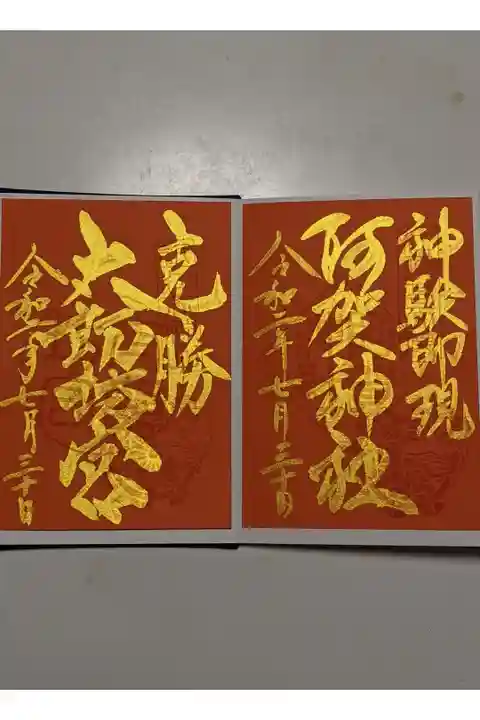 神験即現
阿賀神社
令和二年七月三十日
克勝
太郎坊宮
令和二年七月三十日